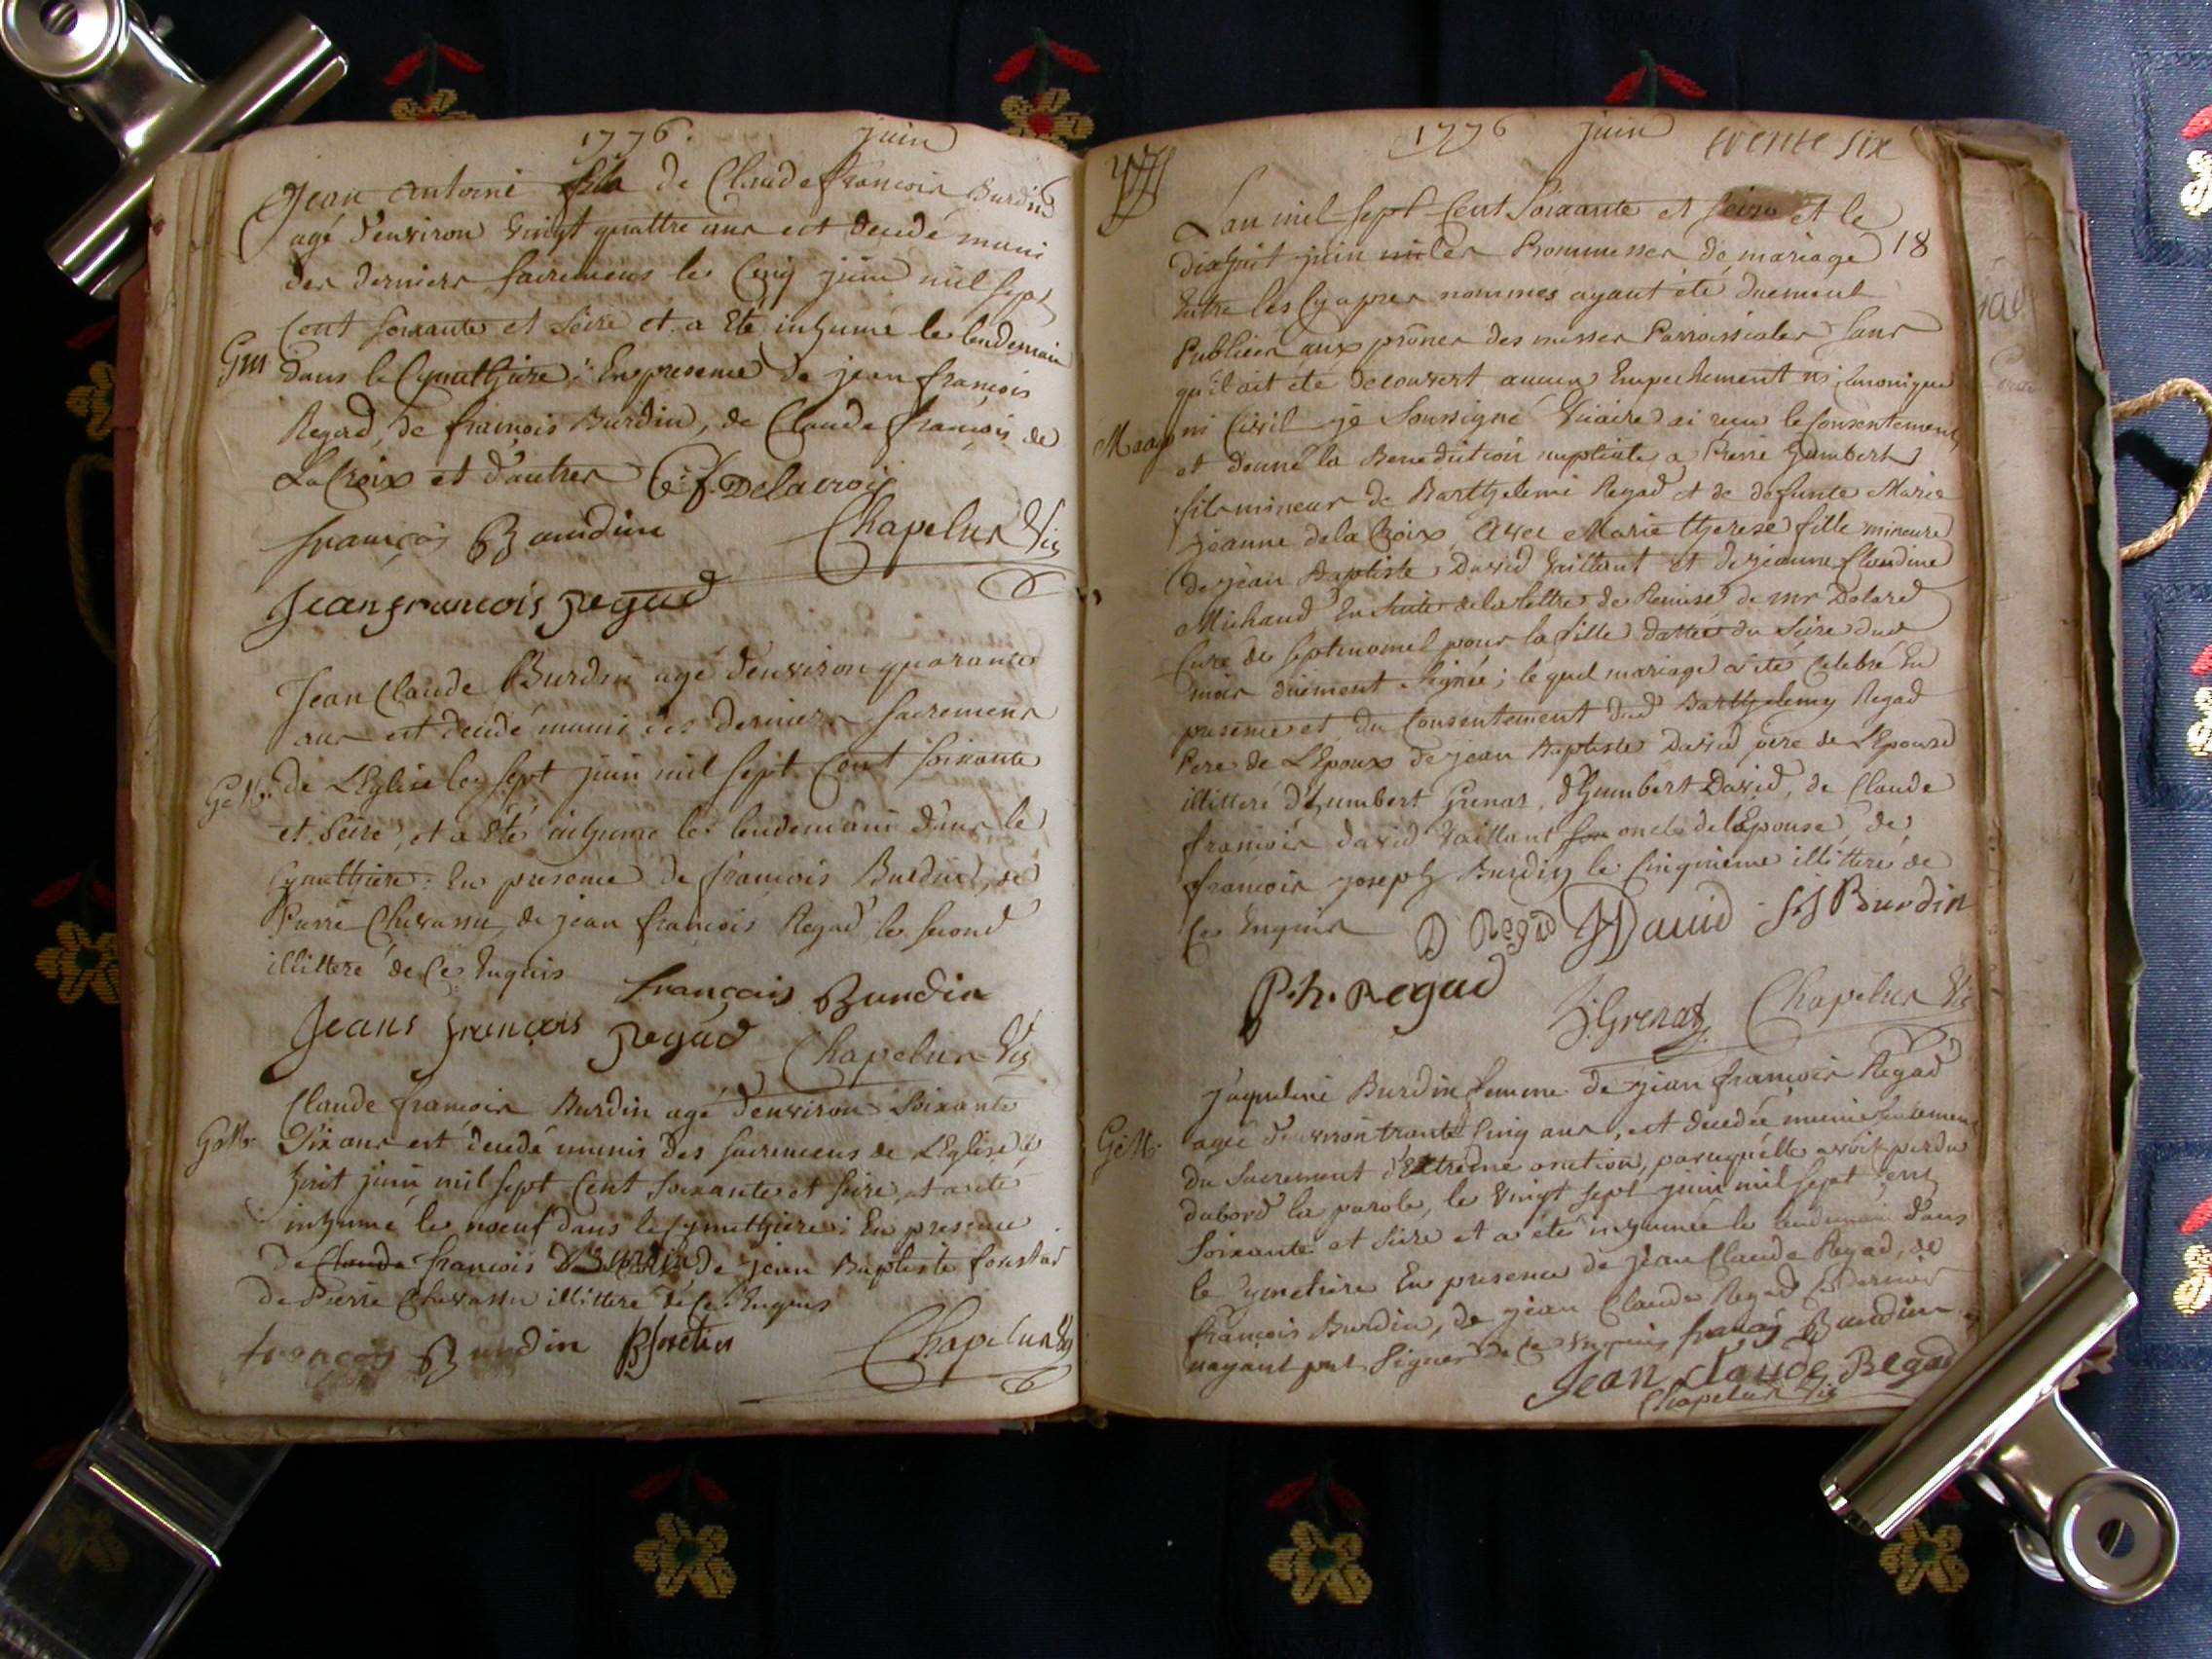 1776. juin
Jean Antoine fils de Claude francois Burdin
agé d'environ vingt quattre ans est decedé muni
des derniers sacremens le cinq juin mil sept
cent soixante et seize et a été inhumé le lendemain
Gm dans le Cymethiere; En presence de jean françois
Regad, de françois Burdin, de Claude françois de
La Croix et d'autres C: f: Delacroix
françois Bourdin Chapelux Vic
Jean francois regad
Jean Claude Burdin agé d'environ quarante
ans est decedé muni des derniers sacremens
de L'Eglise le sept juin mil sept cent soixante
et seize, et a été inhumé le lendemain dans le
Cymethiere: En presence de francois Burdin, de
Pierre Chevassu, de jean francois Regad le second
illitteré de ce Enquis françois Burdin
Jeans françois regad Chapelux Vic
Claude francois Burdin agé d'environ soixante
dix ans est decedé munis des sacremens de L'Eglise le
huit juin mil sept cent soixante et seize, et a été
inhumé le neuf dans le Cymethiere: En presence
de Claude francois Burdin de jean Baptiste
de Pierre Chevassu illitteré de ce Enquis
françois Burdin Chapelux Vic
1776 juin trente six
L'an mil sept cent soixante et seize et le
dixhuit juin les Prommesses de mariage 18
Entre les cy apres nommes ayant été duement
Publiees aux prônes des messes Parroissiales sans
qu'il ait été decouvert aucun Empechement ni canonique
ni civil je soussigné vicaire ai recu le consentement
et donné la Benediction nuptiale a Pierre humbert
fils mineur de Barthelemi Regad et de defunte Marie
jeanne dela Croix, avec Marie therese fille mineure
de jean Baptiste David vaillant et de jeanne Claudine
Michaud En suite de la lettre de Remise de mr Dolard
Curé de septmoncel pour la fille dattée du seize dud
mois duement signée; lequel mariage a été celebré En
presence et du consentement dud Barthelemy Regad
Pere de L'Epoux de jean Baptiste David père de L'Epouse
illitteré d'humbert Grenas, d'humbert David, de Claude
francois david vaillant son oncle de l'Epouse, de
francois joseph Burdin le cinquième illitteré de
ce Enquis B Regad H David f j Burdin
P. h. Regad h. Grenat Chapelux Vic
jaqueline Burdin femme de jean françois Regad
agée d'environ trente cinq ans, est decedée munie seulement
du sacrement d'Extreme onction, parcequ'elle avoit perdu
dabord la parole, le vingt sept juin mil sept cent
soixante et seize et a été inhumée le lendemain dans
le Cymetiere En presence de jean Claude Regad, de
françois Burdin, de jean Claude Regad ce dernier
nayant put signer de ce Enquis françois Bourdin
Jean Claude Regad
Chapelux Vic